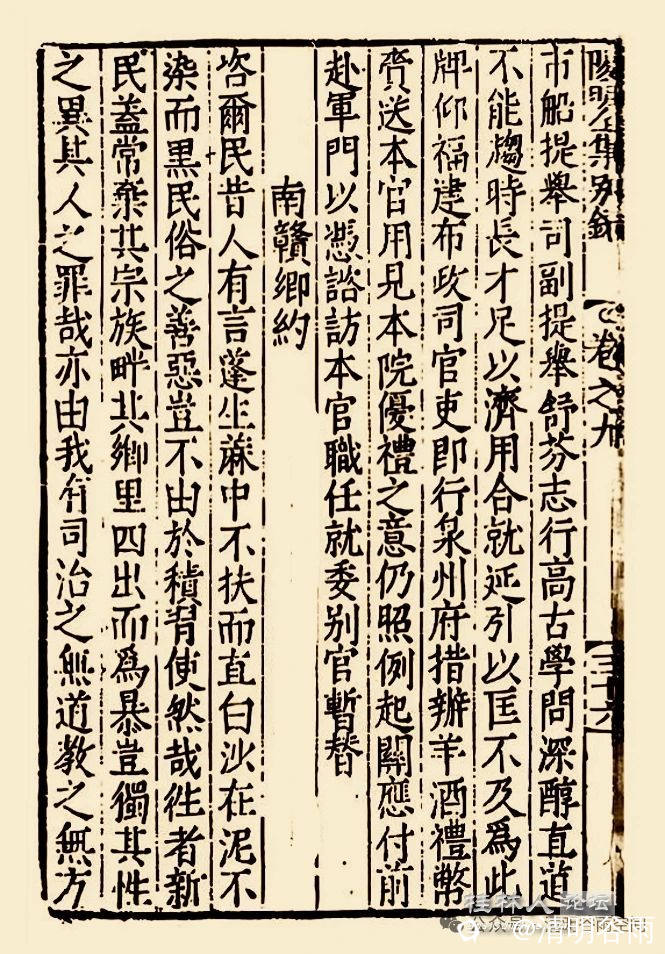 陽明全集别錄
卷之九
三十六
市船提舉司副提舉舒芬志行高古學問深醇直道
不能趨時長才足以濟用合就延引以匡不及爲此
牌仰福建布政司官吏即行泉州府措辦羊酒禮幣
賫送本官用見本院優禮之意仍照例起關應付前
赴軍門以憑諮訪本官職任就委别官暫替
南贛鄉約
咨爾民昔人有言蓬生蔴中不扶而直白沙在泥不
染而黑民俗之善惡豈不由於積習使然哉徃者新
民蓋常棄其宗族畔其鄉里四出而爲暴豈獨其性
之異其人之罪哉亦由我有司治之無道教之無方
桂林人论坛
公众号
空间
@清明谷雨